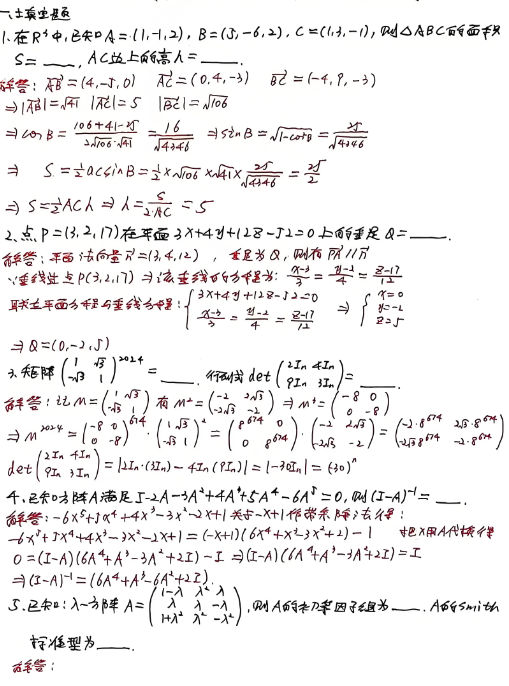 一、填空题
1.在R³中,已知A=(1,-1,2), B=(5,-6,2), C=(1,3,-1), 则△ABC的面积
S=____, AC边上的高h=____.
解答: AB=(4,-5,0) AC=(0,4,-3) BC=(-4,9,-3)
⇒|AB|=√41 |AC|=5 |BC|=√106
⇒cosB=(106+41-25)/(2√106·√41)=16/√4346 ⇒sinB=√(1-cos²B)=25/√4346
⇒ S=1/2acsinB=1/2×√106×√41×25/√4346=25/2
⇒S=1/2AC·h⇒h=S/(2·AC)=5
2、点P=(3,2,17)在平面3x+4y+12z-52=0上的垂足Q=____.
解答:平面法向量n=(3,4,12), 垂足为Q,则有PQ//n
∵垂线过点P(3,2,17)⇒该垂线的方程为: (x-3)/3=(y-2)/4=(z-17)/12
联立平面方程与垂线方程: {3x+4y+12z-52=0, (x-3)/3=(y-2)/4=(z-17)/12 ⇒ {x=0, y=-2, z=5
⇒Q=(0,-2,5)
3.矩阵(1 √3; -√3 1)^2024=____, 行列式det(2In 4In; 9In 3In)=____.
解答:记M=(1 √3; -√3 1) 有M²=(-2 2√3; -2√3 -2)⇒M³=(-8 0; 0 -8)
⇒M^2024=(-8 0; 0 -8)^674·(1 √3; -√3 1)²=(8^674 0; 0 8^674)·(-2 2√3; -2√3 -2)=(-2·8^674 2√3·8^674; -2√3·8^674 -2·8^674)
det(2In 4In; 9In 3In)=|2In·(3In)-4In(9In)|=|-30In|=(-30)ⁿ
4、已知方阵A满足5-2A-3A²+4A³+5A⁴-6A⁵=0,则(I-A)⁻¹=____.
解答:-6x⁵+5x⁴+4x³-3x²-2x+1关于-x+1作带余除法得:
-6x⁵+5x⁴+4x³-3x²-2x+1=(-x+1)(6x⁴+x³-3x²+2)-1 把x用A代换得
0=(I-A)(6A⁴+A³-3A²+2I)-I⇒(I-A)(6A⁴+A³-3A²+2I)=I
⇒(I-A)⁻¹=(6A⁴+A³-6A²+2I).
5、已知:λ-方阵A=(1-λ λ² λ; λ λ -λ; 1+λ² λ² -λ²),则A的初等因子组为____. A的Smith
标准型为____.
解答: